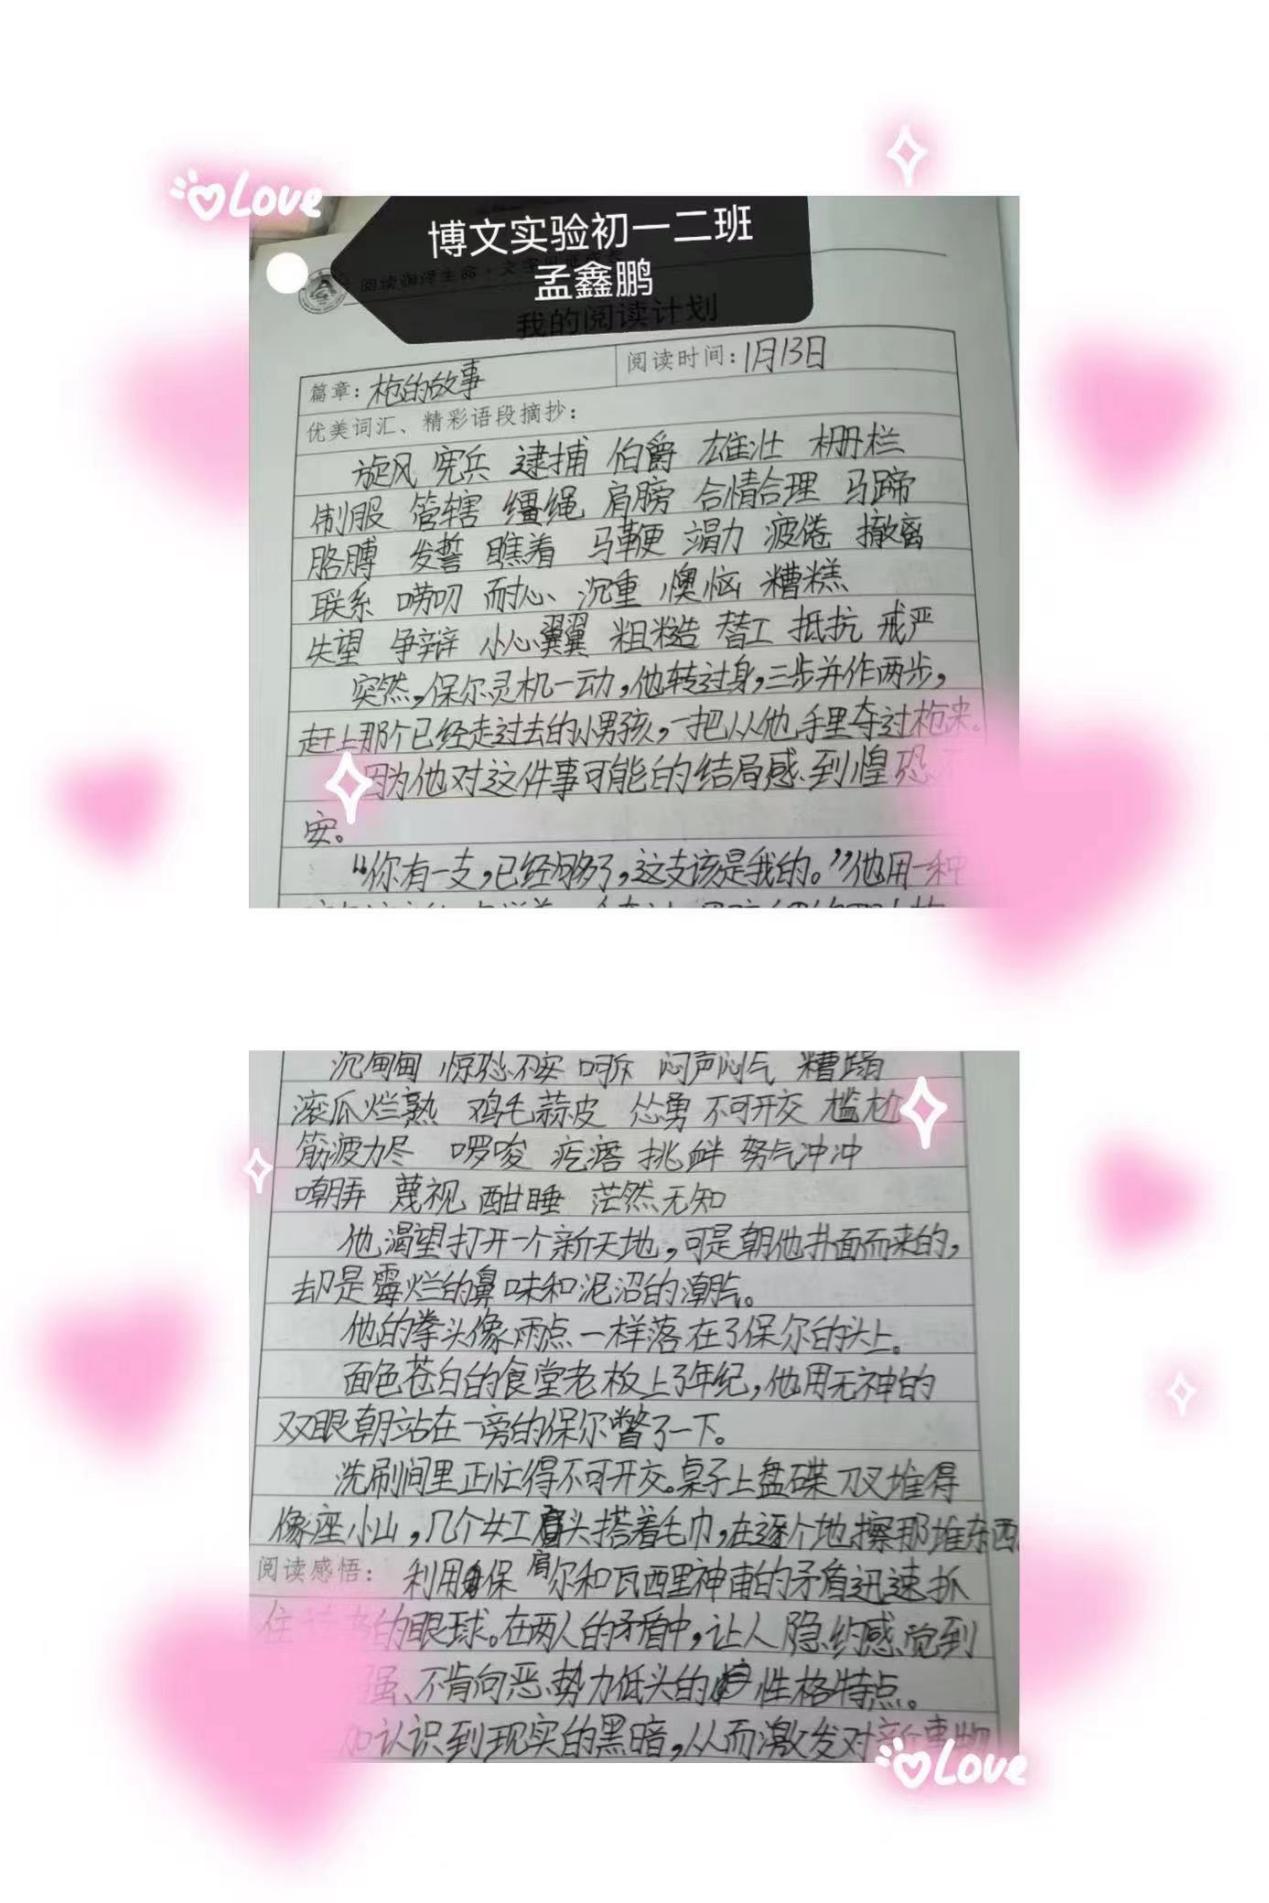 Love
博文实验初一二班
孟鑫鹏
我的阅读计划
篇章：枪的故事
阅读时间：1月13日
优美词汇、精彩语段摘抄：
旋风 宪兵 逮捕 伯爵 雄壮 栅栏
制服 管辖 缰绳 肩膀 合情合理 马蹄
胳膊 发誓 瞧着 马鞭 竭力 疲倦 撤离
联系 唠叨 耐心 沉重 懊恼 糟糕
失望 争辩 小心翼翼 粗糙 替工 抵抗 戒严
突然，保尔灵机一动，他转过身，三步并作两步，
赶上那个已经走过去的小男孩，一把从他手里夺过枪来。
因为他对这件事可能的结局感到惶恐
安。
“你有一支，已经够了，这支该是我的。”他用一种
沉甸甸 惊恐不安 呵斥 闷声闷气 糟蹋
滚瓜烂熟 鸡毛蒜皮 怂勇 不可开交 尴尬
筋疲力尽 啰唆 疙瘩 挑衅 努气冲冲
嘲弄 蔑视 酣睡 茫然无知
他渴望打开一个新天地，可是朝他扑面而来的，
却是霉烂的鼻味和泥沼的潮气。
他的拳头像雨点一样落在了保尔的头上。
面色苍白的食堂老板上了年纪，他用无神的
双眼朝站在一旁的保尔瞥了一下。
洗刷间里正忙得不可开交。桌子上盘碟刀叉堆得
像座小山，几个女工肩头搭着毛巾，在逐个地擦那堆东西
阅读感悟： 利用保尔和瓦西里神甫的矛盾迅速抓
住的眼球。在两人的矛盾中，让人隐约感觉到
强、不肯向恶势力低头的性格特点。
加认识到现实的黑暗，从而激发对新事物
Love